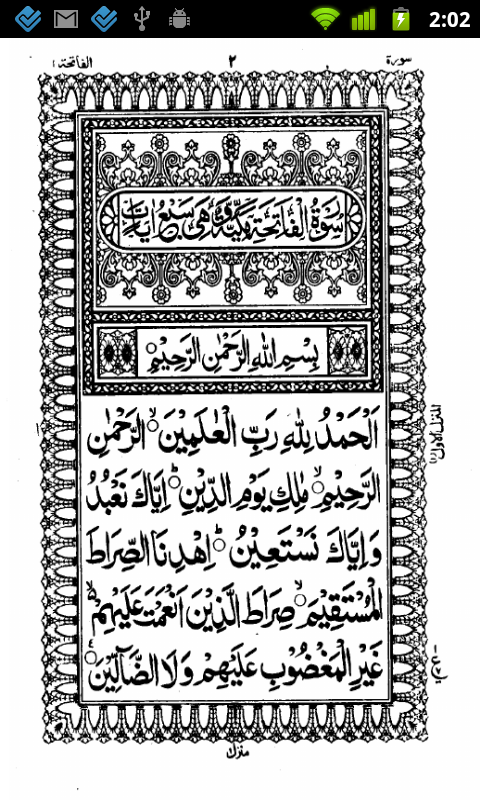 2:02
سورة ٢ الفاتحة ١
سُوْرَةُ الْفَاتِحَةِ مَكِّيَّةٌ وَّهِىَ سَبْعُ اٰيَاتٍ
بِسْمِ اللهِ الرَّحْمٰنِ الرَّحِيْمِ
اَلْحَمْدُ لِلّٰهِ رَبِّ الْعٰلَمِيْنَ ۙ الرَّحْمٰنِ
الرَّحِيْمِ ۙ مٰلِكِ يَوْمِ الدِّيْنِ ؕ اِيَّاكَ نَعْبُدُ
وَاِيَّاكَ نَسْتَعِيْنُ ؕ اِهْدِنَا الصِّرَاطَ
الْمُسْتَقِيْمَ ۙ صِرَاطَ الَّذِيْنَ اَنْعَمْتَ عَلَيْهِمْ ۙ
غَيْرِ الْمَغْضُوْبِ عَلَيْهِمْ وَلَا الضَّآلِّيْنَ
المنزل الاول ١
منزل